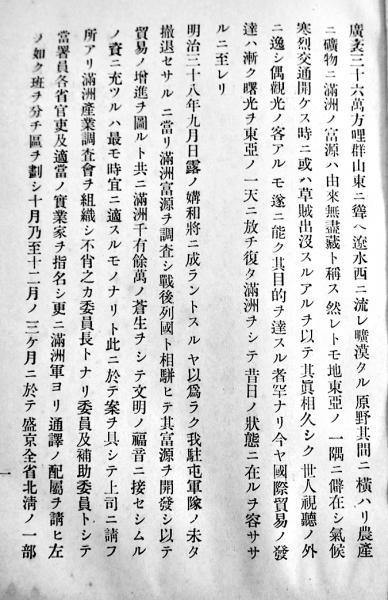 廣袤三十六萬方哩群山東ニ聳ヘ遼水西ニ流レ曠漠タル原野其間ニ橫ハリ農產
ニ礦物ニ滿洲ノ富源ハ由來無盡藏ト稱ス然レトモ地東亞ノ一隅ニ僻在シ氣候
寒烈交通開ケス時ニ或ハ草賊出沒スルアルヲ以テ其眞相久シク世人視聽ノ外
ニ逸シ偶觀光ノ客アルモ遂ニ能ク其目的ヲ達スル者罕ナリ今ヤ國際貿易ノ發
達ハ漸ク曙光ヲ東亞ノ一天ニ放チ復タ滿洲ヲシテ昔日ノ狀態ニ在ルヲ容ササ
ルニ至レリ
明治三十八年九月日露ノ媾和將ニ成ラントスルヤ以爲ラク我駐屯軍隊ノ未タ
撤退セサルニ當リ滿洲富源ヲ調査シ戰後列國ト相駢ヒテ其富源ヲ開發シ以テ
貿易ノ增進ヲ圖ルト共ニ滿洲千有餘萬ノ蒼生ヲシテ文明ノ福音ニ接セシムル
ノ資ニ充ツルハ最モ時宜ニ適スルモノナリト此ニ於テ案ヲ具シテ上司ニ請フ
所アリ滿洲產業調査會ヲ組織シ不肖之カ委員長トナリ委員及補助委員トシテ
當署員各省官吏及適當ノ實業家ヲ指名シ更ニ滿洲軍ヨリ通譯ノ配屬ヲ請ヒ左
ノ如ク班ヲ分チ區ヲ劃シ十月乃至十二月ノ三ケ月ニ於テ盛京全省北淸ノ一部
一